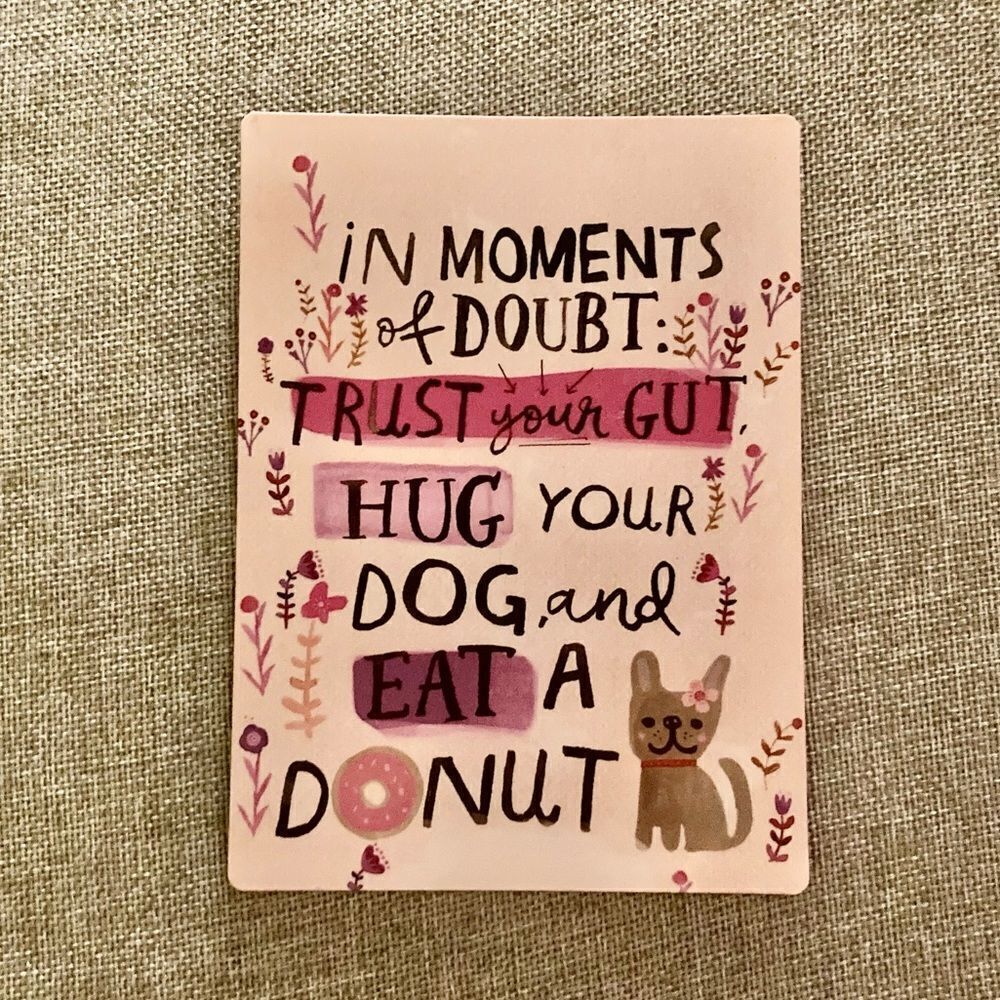 iN MOMENTS
of DOUBT:
TRUST your GUT,
HUG YOUR
DOG, and
EAT A
DONUT